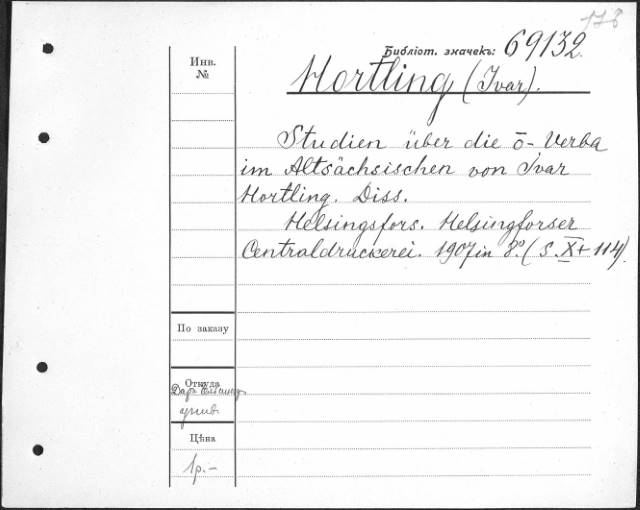 178
Библіот. значекъ: 69132.
Инв.
№
Hortling (Ivar).
Studien über die ō- Verba
im Altsächsischen von Ivar
Hortling. Diss.
Helsingfors. Helsingforser
Centraldruckerei. 1907 in 8º. (S. X + 114).
По заказу
Откуда
Даръ
унив.
Цѣна
1р.-